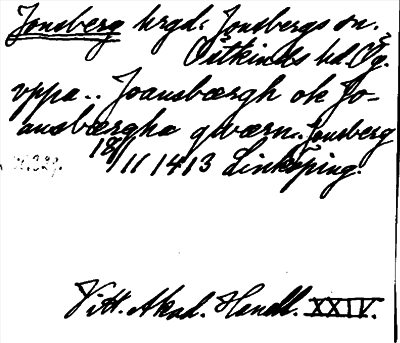 Jonsberg hrgd: Jonsbergs sn.
Östkinds hd Ög.
uppa .. Joansbærgh ok Jo-
ansbærgha qwærn. Jonsberg
18/11 1413 Linköping.
Vitt. Akad. Handl. XXIV.